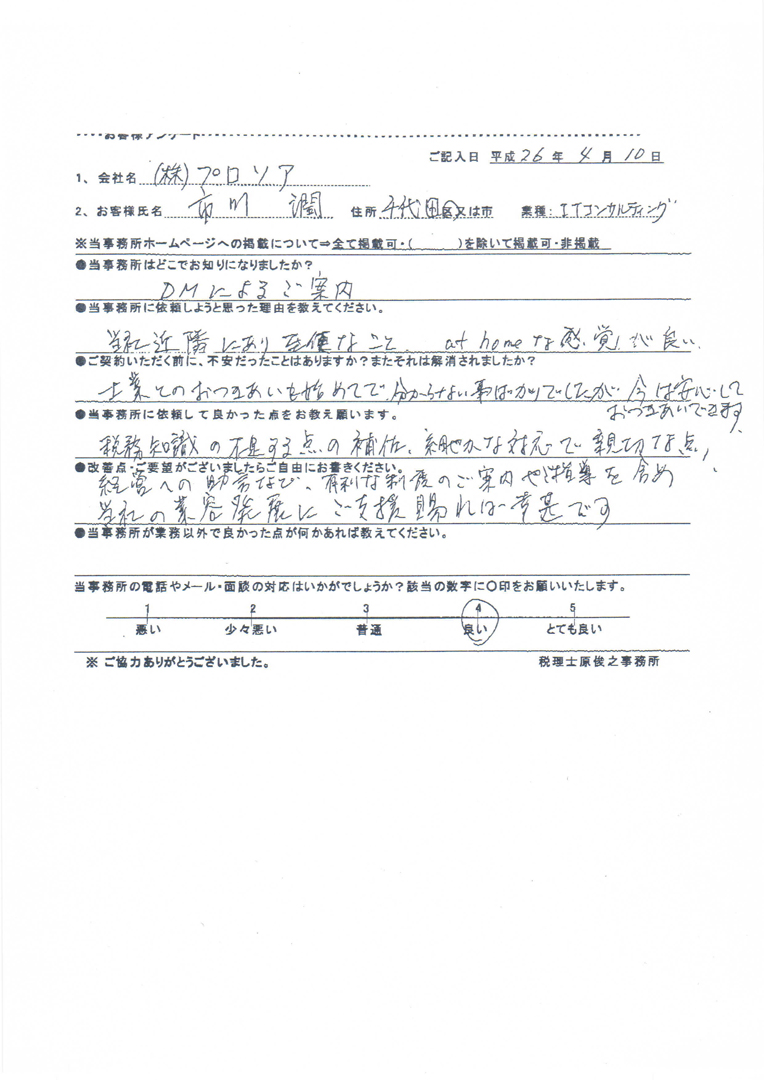 お客様アンケート
ご記入日 平成 26 年 4 月 10 日
1、会社名 (株)プロソア
2、お客様氏名 市川 潤 住所 千代田区又は市 業種:ITコンサルティング
※当事務所ホームページへの掲載について⇒全て掲載可・( )を除いて掲載可・非掲載
●当事務所はどこでお知りになりましたか?
DMによるご案内
●当事務所に依頼しようと思った理由を教えてください。
当社近隣にあり至便なこと、at homeな感覚が良い、
●ご契約いただく前に、不安だったことはありますか?またそれは解消されましたか?
士業とのおつきあいも始めてで分からない事ばかりでしたが今は安心して
おつきあいできます
●当事務所に依頼して良かった点をお教え願います。
税務知識の不足する点の補佐、細やかな対応で親切な点、
●改善点・ご要望がございましたらご自由にお書きください。
経営への助言など、有利な制度のご案内や指導を含め
当社の業容発展にご支援賜れば幸甚です
●当事務所が業務以外で良かった点が何かあれば教えてください。
当事務所の電話やメール・面談の対応はいかがでしょうか?該当の数字に○印をお願いいたします。
1 2 3 4 5
悪い 少々悪い 普通 良い とても良い
※ ご協力ありがとうございました。 税理士原俊之事務所